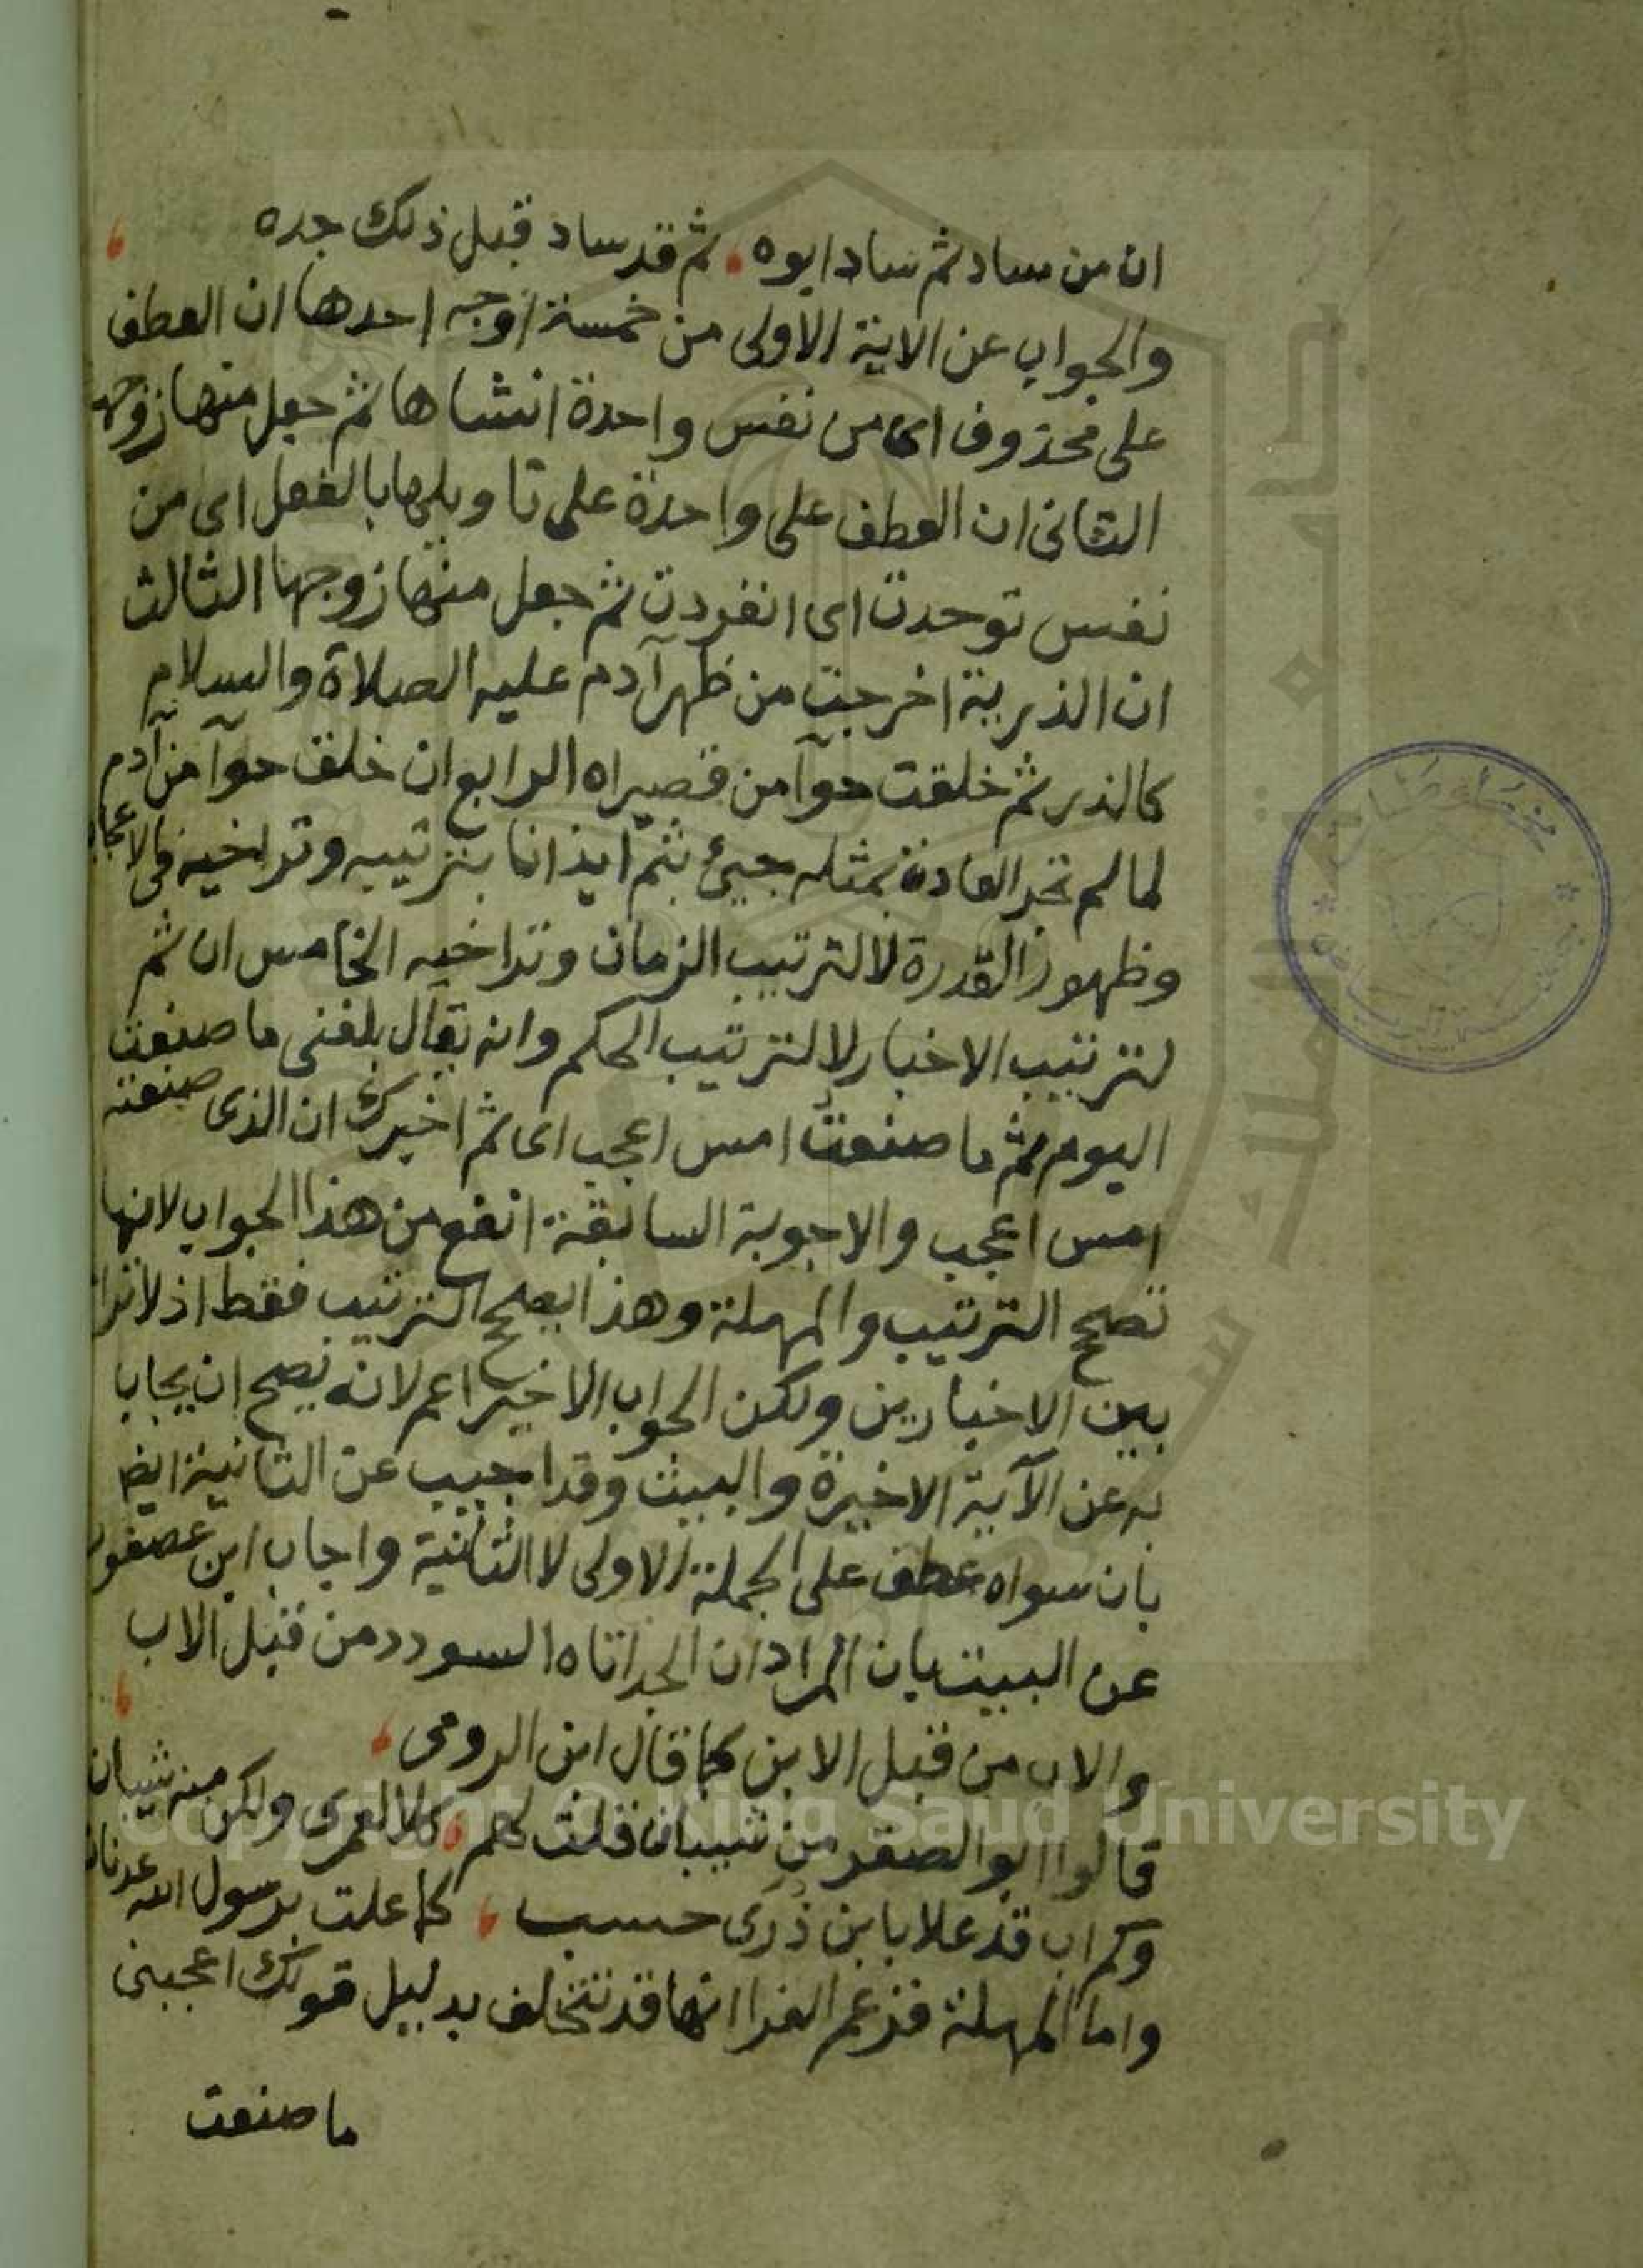 ان من ساد ثم ساد ابوه ، ثم قد ساد قبل ذلك جده ،
والجواب عن الاية الاولى من خمسة اوجه احدها ان العطف
على محذوف اى من نفس واحدة انشاها ثم جعل منها زوجها
الثانى ان العطف على واحدة على تاويلها بالفعل اى من
نفس توحدت اى انفردت ثم جعل منها زوجها الثالث
ان الذرية اخرجت من ظهر آدم عليه الصلاة والسلام
كالذر ثم خلقت حوآ من قصيراه الرابع ان خلق حوآ من آدم
لما لم تجر العادة بمثله جيئ بثم ايذانا بترتيبه وتراخيه فى الاعجاب
وظهور القدرة لا لترتيب الزمان وتراخيه الخامس ان ثم
لترتيب الاخبار لا لترتيب الحكم وانه يقال بلغنى ما صنعت
اليوم ثم ما صنعت امس اعجب اى ثم اخبرك ان الذى صنعته
امس اعجب والاجوبة السابقة انفع من هذا الجواب لانها
تصحح الترتيب والمهملة وهذا يصحح الترتيب فقط اذ لا ترا
بين الاخبارين ولكن الجواب الاخير اعم لانه يصح ان يجاب
به عن الآية الاخيرة والبيت وقد اجيب عن الثانية ايضا
بان سواه عطف على الجملة الاولى لا الثانية واجاب ابن عصفور
عن البيت بان المراد ان الجد اتاه السودد من قبل الاب
والاب من قبل الابن كما قال ابن الرومى ، ،
قالوا ابو الصقر من شيبان قلت لهم ، كلا لعمرى ولكن منه شيبان
وكم اب قد علا بابن ذرى حسب ، كما علت برسول الله عدنان
واما المهملة فزعم الفرا انها قد تتخلف بدليل قولك اعجبنى
ما صنعت
Copyright © King Saud University
جامعة الملك سعود